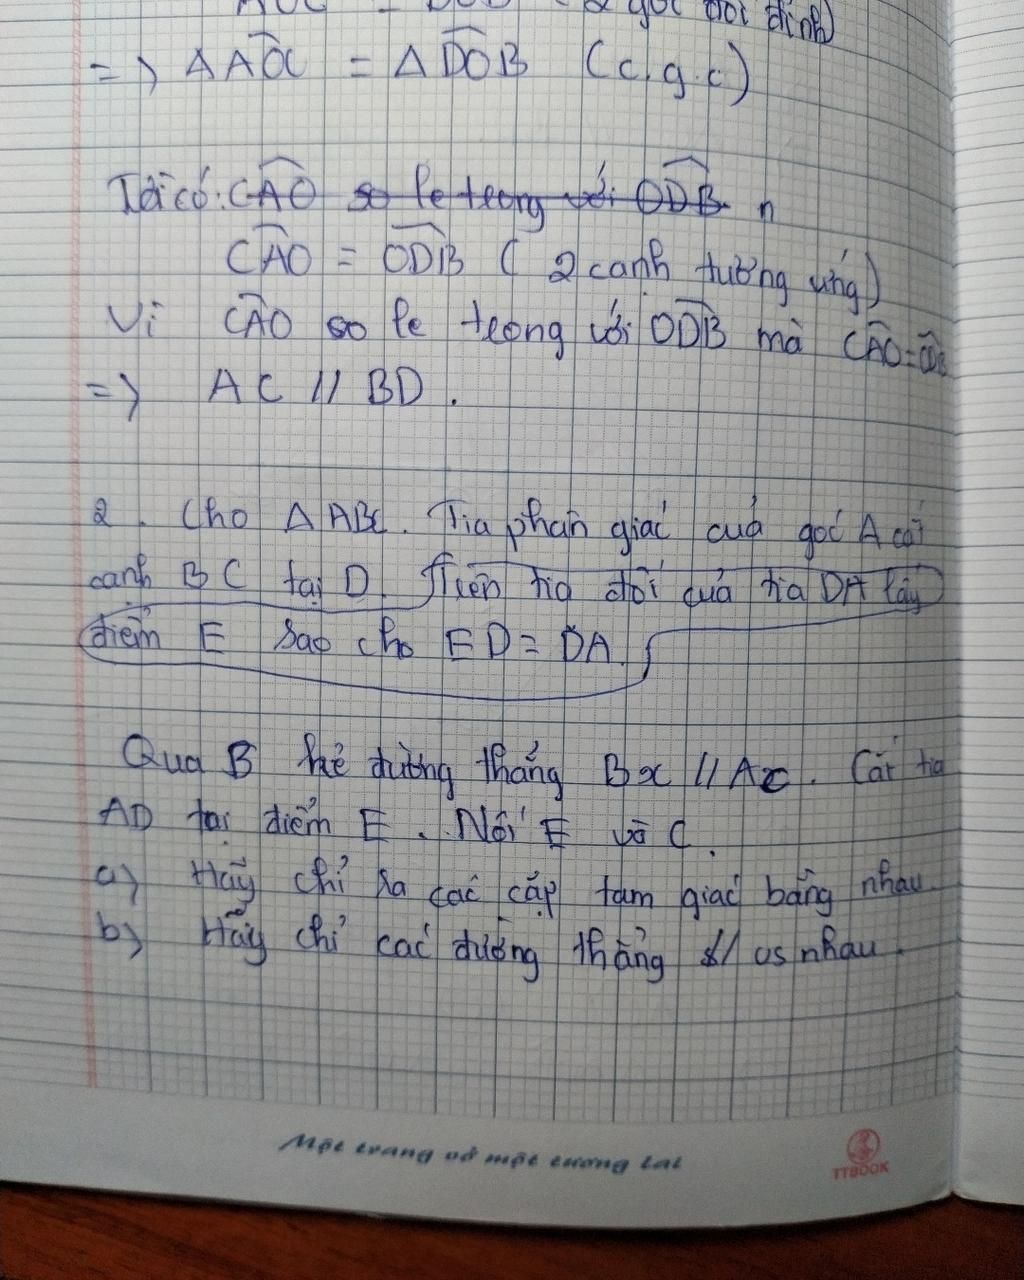 góc đối đỉnh)
=> Δ AOC = Δ DOB (c.g.c)
Tới có: CAO so le trong với ODB n
CAO = ODB ( 2 cạnh tương ứng)
Vì CAO so le trong với ODB mà CAO = ODB
=> AC // BD .
2 . Cho Δ ABC. Tia phân giác của góc A cắt
cạnh BC tại D. Trên tia đối của tia DA lấy
điểm E sao cho ED = DA.
Qua B kẻ đường thẳng Bx // AC. Cắt tia
AD tại điểm E . Nối E và C .
a) Hãy chỉ ra các cặp tam giác bằng nhau
b) Hãy chỉ các đường thẳng // vs nhau .
Một trang vở một tương lai
TTBOOK